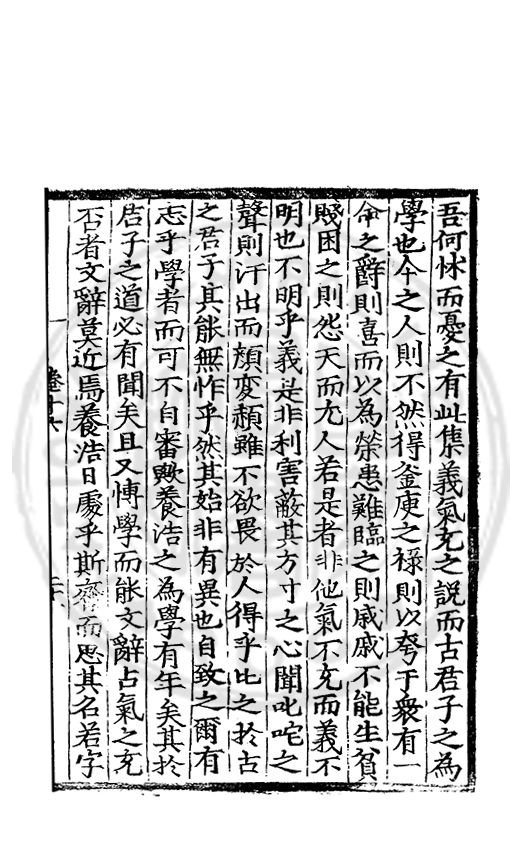 吾何怵而憂之有此集義氣充之說而古君子之為
學也今之人則不然得釜庾之祿則以夸于衆有一
命之爵則喜而以為榮患難臨之則戚戚不能生貧
賤困之則怨天而尤人若是者非他氣不充而義不
明也不明乎義是非利害敵其方寸之心聞叱咤之
聲則汗出而顏變頳雖不欲畏於人得乎比之於古
之君子其能無怍乎然其始非有異也自致之爾有
志乎學者而可不自審歟養浩之為學有年矣其於
君子之道必有聞矣且又博學而能文辭占氣之充
否者文辭莫近焉養浩日處乎斯齋而思其名若字
卷十六